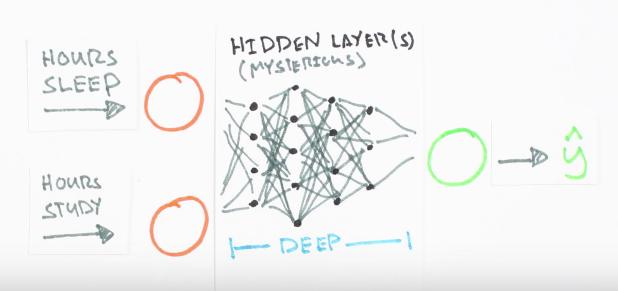 HOURS
SLEEP
HOURS
STUDY
HIDDEN LAYER(S)
(MYSTERIOUS)
DEEP
ŷ